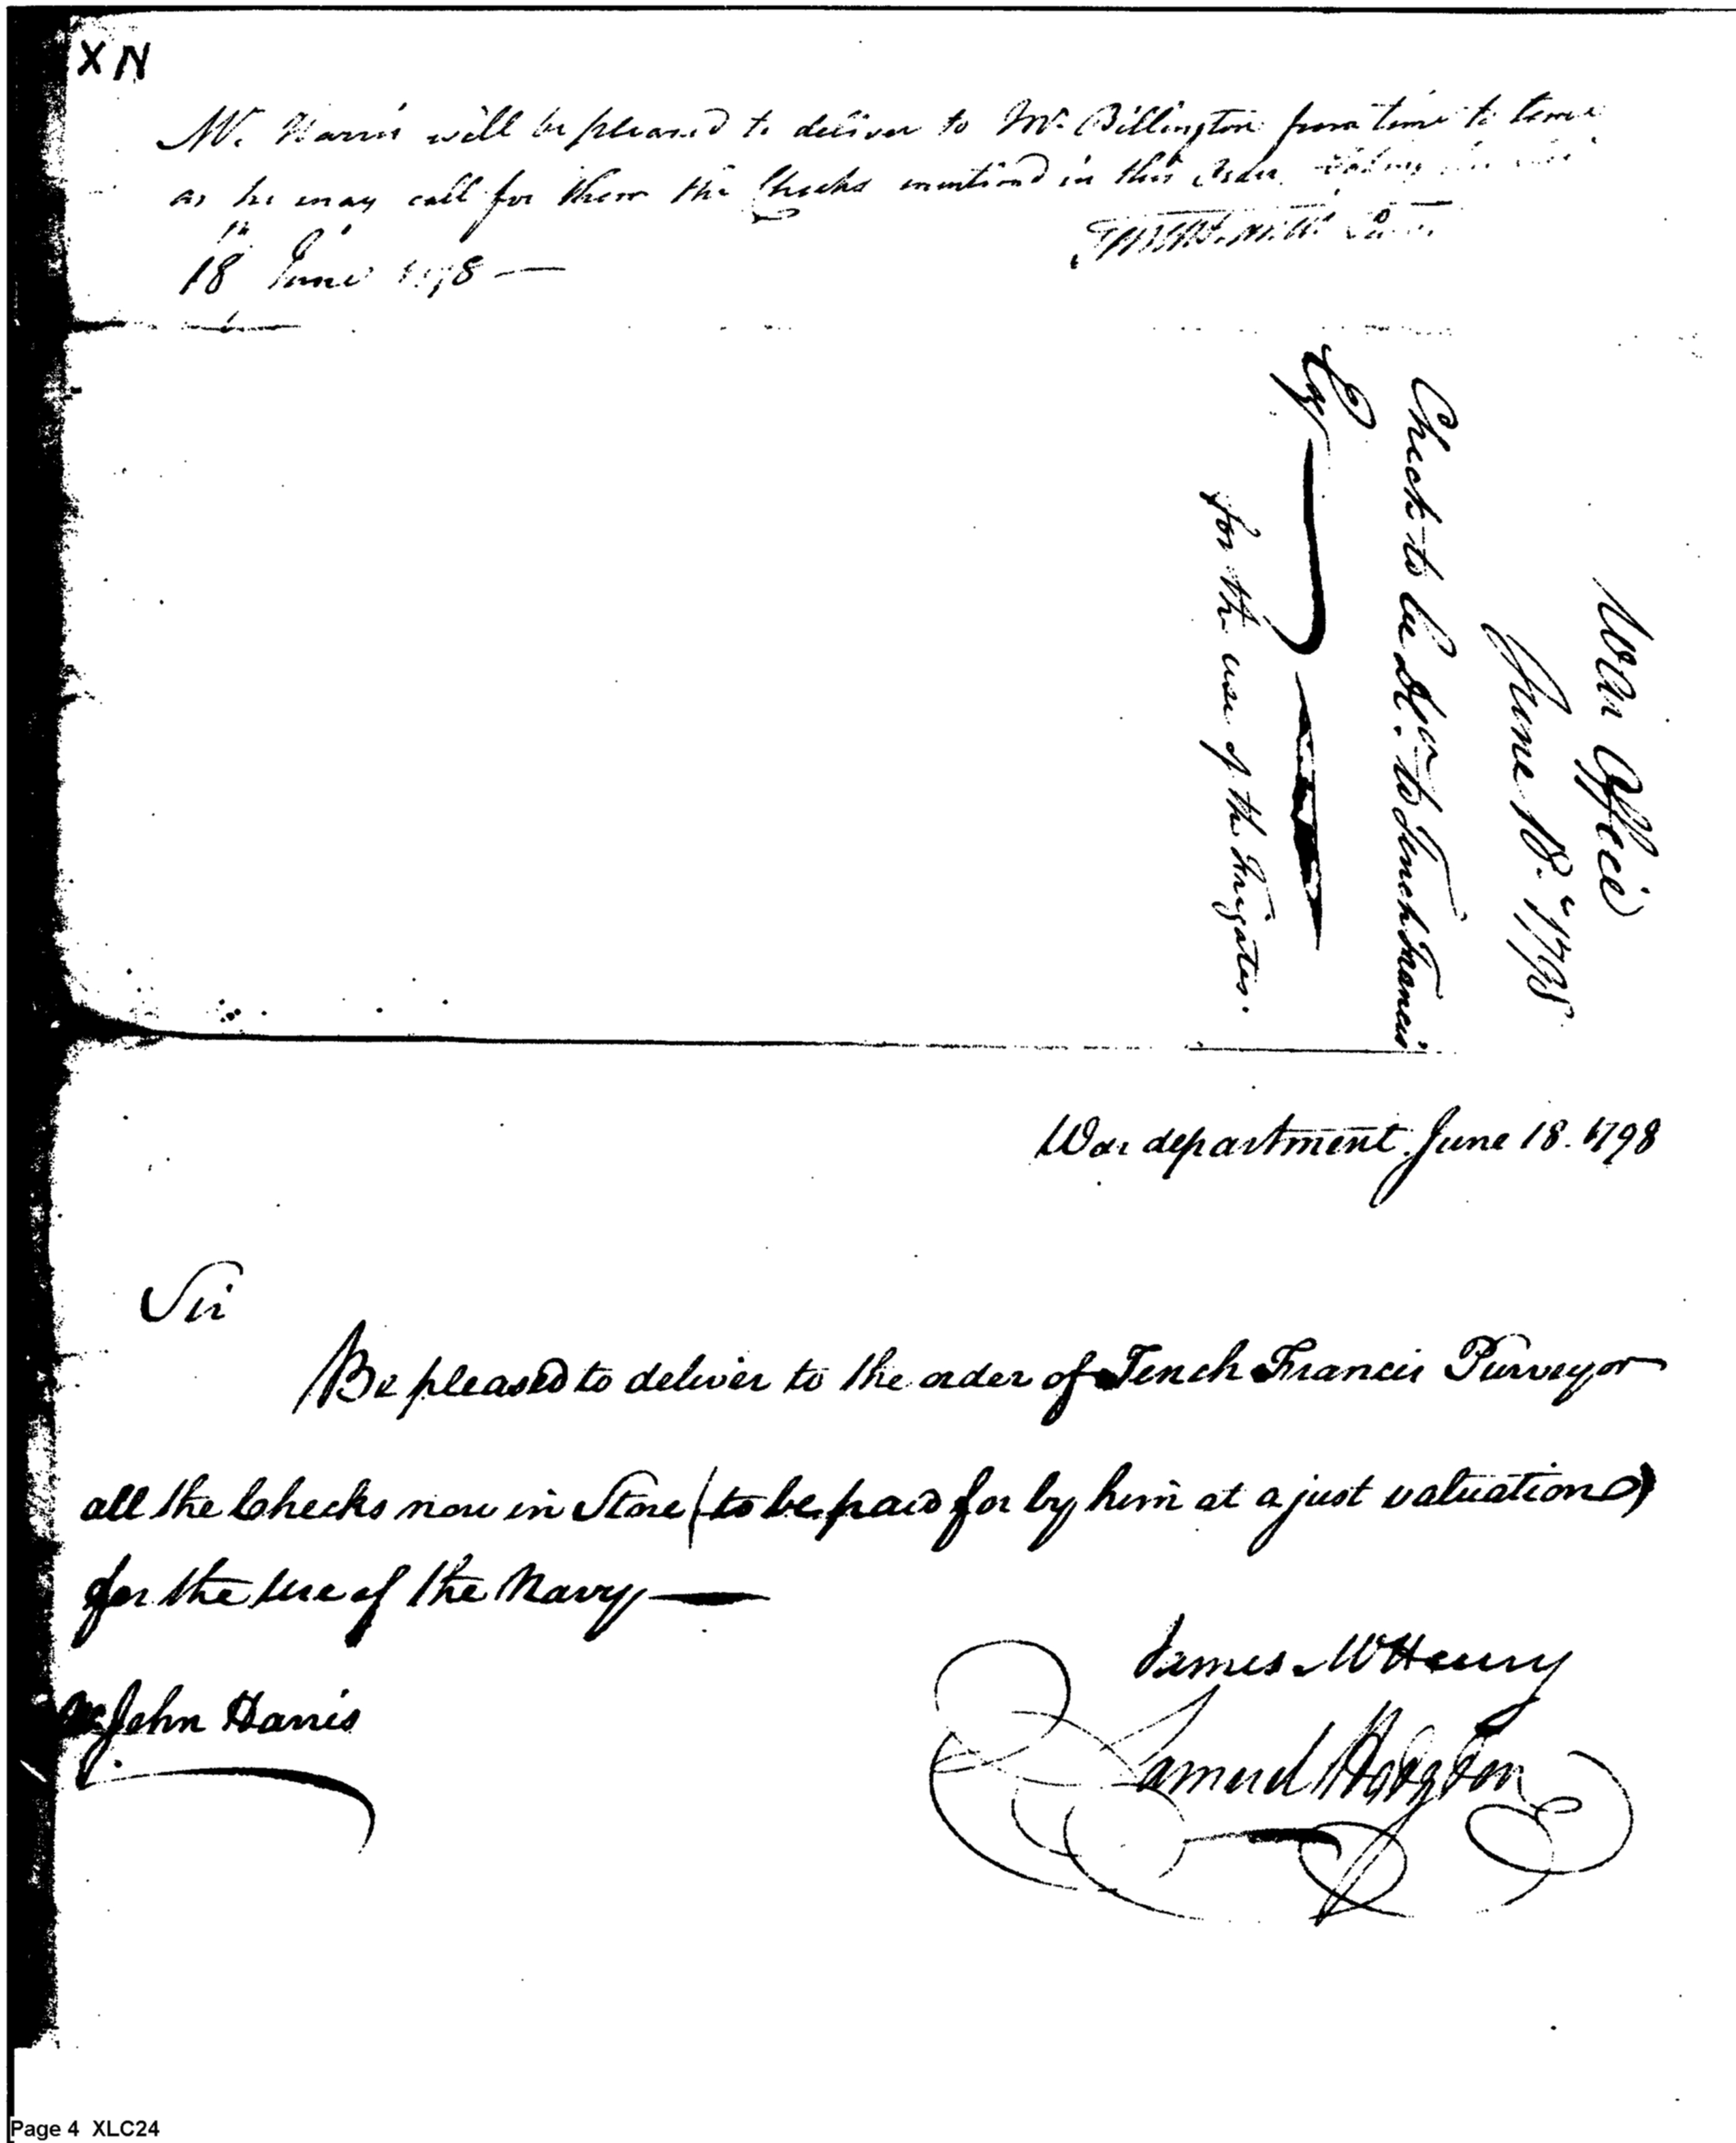 XN
Mr. Harris will be pleased to deliver to Mr. Billington from time to time
as he may call for them the Checks mentiond in this Order
18th June 1798 —
War Office
June 18. 1798
Check to be to Tench Francis
Esqr
for the use of the Frigates.
War department. June 18. 1798
Sir
Be pleased to deliver to the order of Tench Francis Purveyor
all the Checks now in Store (to be paid for by him at a just valuation)
for the use of the Navy —
James McHenry
Samuel Hodgdon
Mr. John Harris
Page 4 XLC24